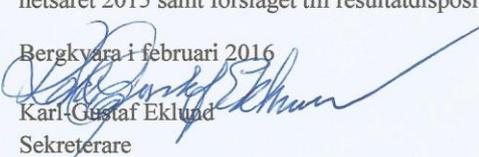 netsåret 2015 samt förslaget till resultatdisposi
Bergkvara i februari 2016
Karl-Gustaf Eklund
Karl-Gustaf Eklund
Sekreterare